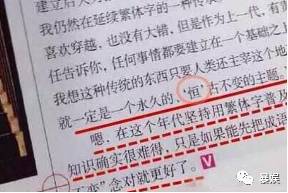 我仍然在延续繁体字的一种传统
喜欢穿越，也没有大错，但是作为上一代，有责
任告诉你，任何事情都要建立在一个基础之上
我想这种传统的东西只要人类还主宰这个地
就一定是一个永久的、‘恒’古不变的主题。
嗯，在这个年代坚持用繁体字普及
知识确实很难得，只是如果能先把成语
不变”念对就更好了。V
暴娱